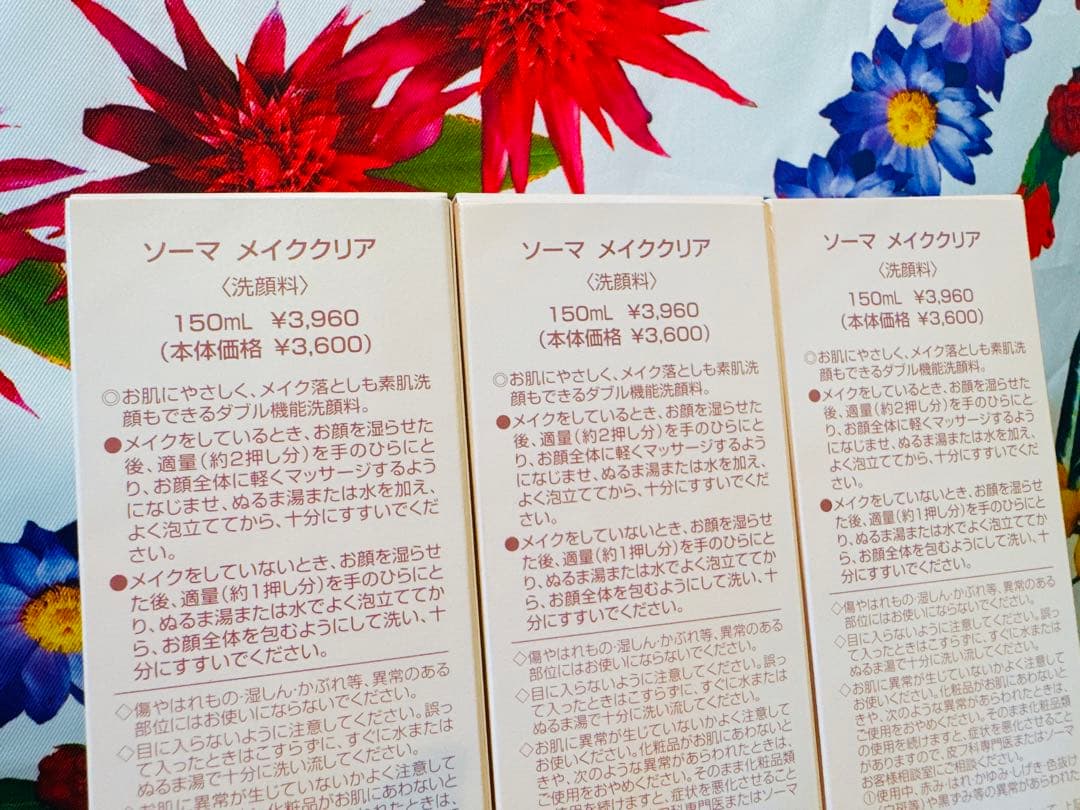 ソーマ メイククリア
〈洗顔料〉
150mL ¥3,960
(本体価格 ¥3,600)
◎お肌にやさしく、メイク落としも素肌洗
顔もできるダブル機能洗顔料。
●メイクをしているとき、お顔を湿らせた
後、適量(約2押し分)を手のひらにと
り、お顔全体に軽くマッサージするよう
になじませ、ぬるま湯または水を加え、
よく泡立ててから、十分にすすいでくだ
さい。
●メイクをしていないとき、お顔を湿らせ
た後、適量(約1押し分)を手のひらにと
り、ぬるま湯または水でよく泡立ててか
ら、お顔全体を包むようにして洗い、十
分にすすいでください。
◇傷やはれもの・湿しん・かぶれ等、異常のある
部位にはお使いにならないでください。
◇目に入らないように注意してください。誤っ
て入ったときはこすらずに、すぐに水または
ぬるま湯で十分に洗い流してください。
◇お肌に異常が生じていないかよく注意して
お使いください。化粧品がお肌にあわないと
ソーマ メイククリア
〈洗顔料〉
150mL ¥3,960
(本体価格 ¥3,600)
◎お肌にやさしく、メイク落としも素肌洗
顔もできるダブル機能洗顔料。
●メイクをしているとき、お顔を湿らせた
後、適量(約2押し分)を手のひらにと
り、お顔全体に軽くマッサージするよう
になじませ、ぬるま湯または水を加え、
よく泡立ててから、十分にすすいでくだ
さい。
●メイクをしていないとき、お顔を湿らせ
た後、適量(約1押し分)を手のひらにと
り、ぬるま湯または水でよく泡立ててか
ら、お顔全体を包むようにして洗い、十
分にすすいでください。
◇傷やはれもの・湿しん・かぶれ等、異常のある
部位にはお使いにならないでください。
◇目に入らないように注意してください。誤っ
て入ったときはこすらずに、すぐに水または
ぬるま湯で十分に洗い流してください。
◇お肌に異常が生じていないかよく注意して
お使いください。化粧品がお肌にあわないと
きや、次のような異常があらわれたときは、
ご使用をおやめください。そのまま化粧品類
の使用を続けますと、症状を悪化させること
ソーマ メイククリア
〈洗顔料〉
150mL ¥3,960
(本体価格 ¥3,600)
◎お肌にやさしく、メイク落としも素肌洗
顔もできるダブル機能洗顔料。
●メイクをしているとき、お顔を湿らせた
後、適量(約2押し分)を手のひらにと
り、お顔全体に軽くマッサージするよう
になじませ、ぬるま湯または水を加え、
よく泡立ててから、十分にすすいでくだ
さい。
●メイクをしていないとき、お顔を湿らせ
た後、適量(約1押し分)を手のひらにと
り、ぬるま湯または水でよく泡立ててか
ら、お顔全体を包むようにして洗い、十
分にすすいでください。
◇傷やはれもの・湿しん・かぶれ等、異常のある
部位にはお使いにならないでください。
◇目に入らないように注意してください。誤っ
て入ったときはこすらずに、すぐに水または
ぬるま湯で十分に洗い流してください。
◇お肌に異常が生じていないかよく注意して
お使いください。化粧品がお肌にあわないと
きや、次のような異常があらわれたときは、
ご使用をおやめください。そのまま化粧品類
の使用を続けますと、症状を悪化させること
がありますので、皮フ科専門医またはソーマ
お客様相談室にご相談ください。
①使用中、赤み・はれ・かゆみ・しげき・色抜け
(白斑等)や黒ずみ等の異常があらわれた